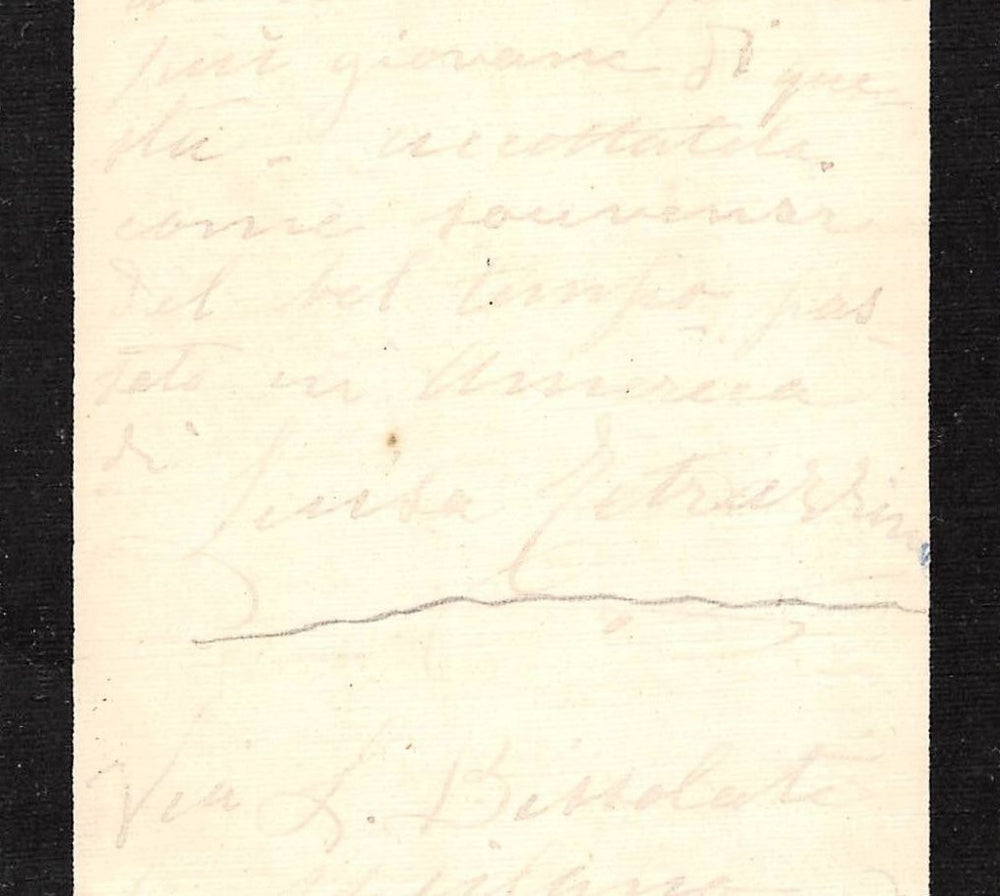 più giovane di que
sta. accettatela
come souvenir
del bel tempo pas
sato in America
di
Luisa Tetrazzini
Via L. Bissolati
Milano